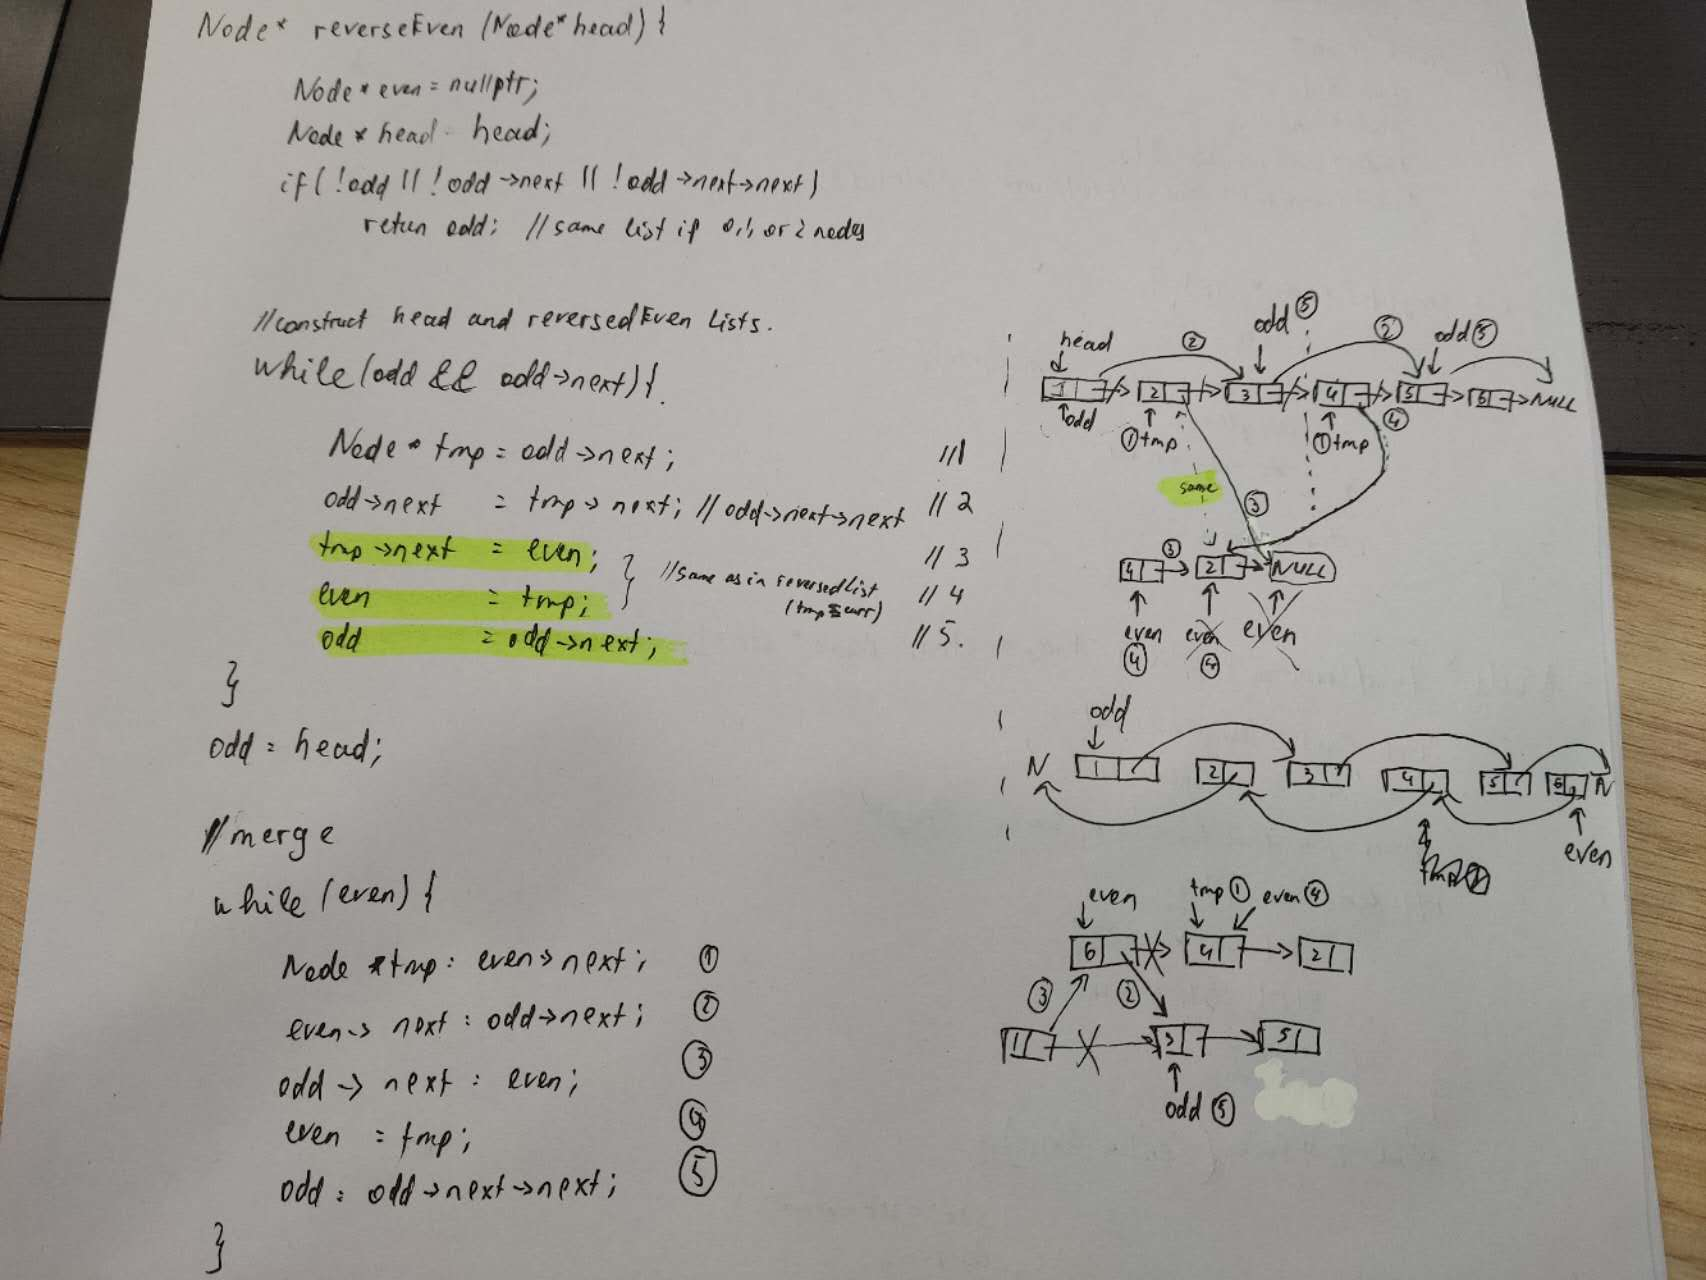 Node* reverseEven (Node* head) {
Node * even = nullptr;
Node * head = head;
if( !odd || !odd->next || !odd->next->next)
return odd; // same list if 0,1, or 2 nodes
//construct head and reversedEven Lists.
while(odd && odd->next) {
Node * tmp = odd->next; //1
odd->next = tmp->next; // odd->next->next //2
tmp->next = even; //3
even = tmp; //4
//same as in reversedList
(tmp ≡ curr)
odd = odd->next; //5.
}
odd = head;
//merge
while (even) {
Node *tmp = even->next; ①
even->next = odd->next; ②
odd->next = even; ③
even = tmp; ④
odd = odd->next->next; ⑤
}
odd ⑤
head ② ② odd ⑤
1 2 3 4 5 6 NULL
odd ① tmp ① tmp ④
same
③
③
4 2 NULL
even even even
④ ④
odd
N 1 2 3 4 5 6 N
even
even tmp ① even ④
6 4 2
③ ②
1 3 5
odd ⑤